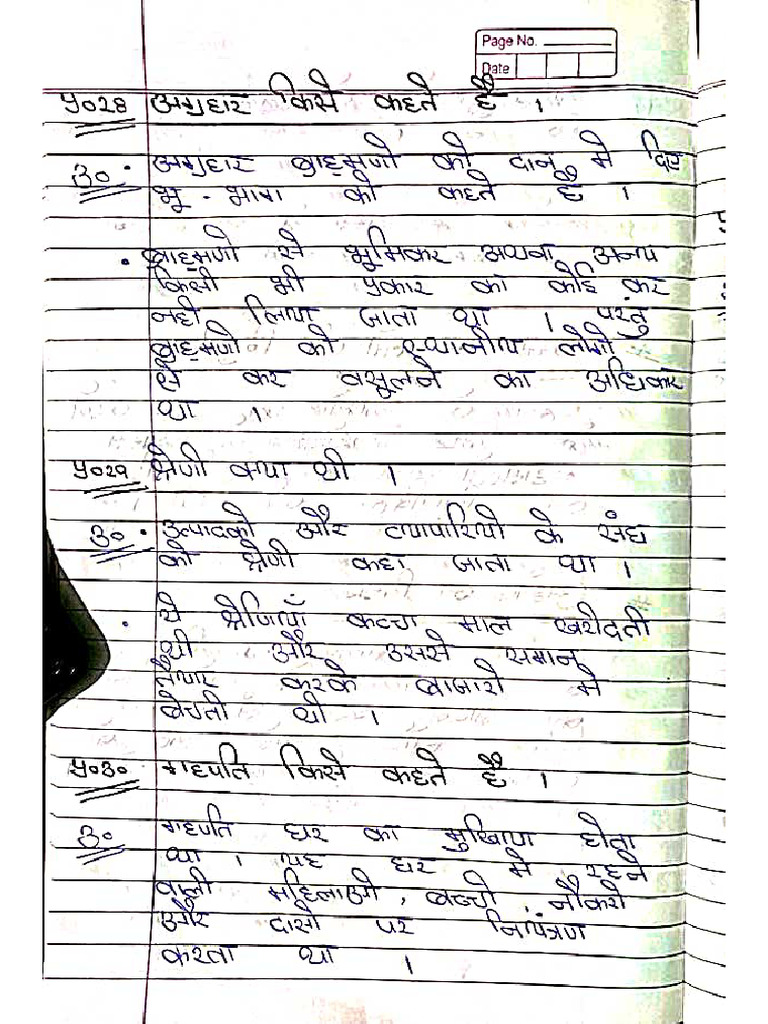 Page No.
Date
प्र०28 अग्रहार किसे कहते है ।
उ० • अग्रहार ब्राह्मणो को दान मे दिए
भू - भाग को कहते है ।
• ब्राह्मणो से भूमिकर अथवा अन्य
किसी भी प्रकार का कोई कर
नही लिया जाता था । परंतु
ब्राह्मणो को स्थानीय लोगो
से कर वसूलने का अधिकार
था ।
प्र०29 श्रेणी क्या थी ।
उ० • उत्पादको और व्यापारियो के संघ
को श्रेणी कहा जाता था ।
• ये श्रेणियाँ कच्चा माल खरीदती
थी और उससे समान
तैयार करके बाजारो मे
बेचती थी ।
प्र०30 गहपति किसे कहते है ।
उ० गहपति घर का मुखिया होता
था । यह घर मे रहने
वाली महिलाओ , बच्चो , नौकरो
और दासो पर नियंत्रण
करता था ।